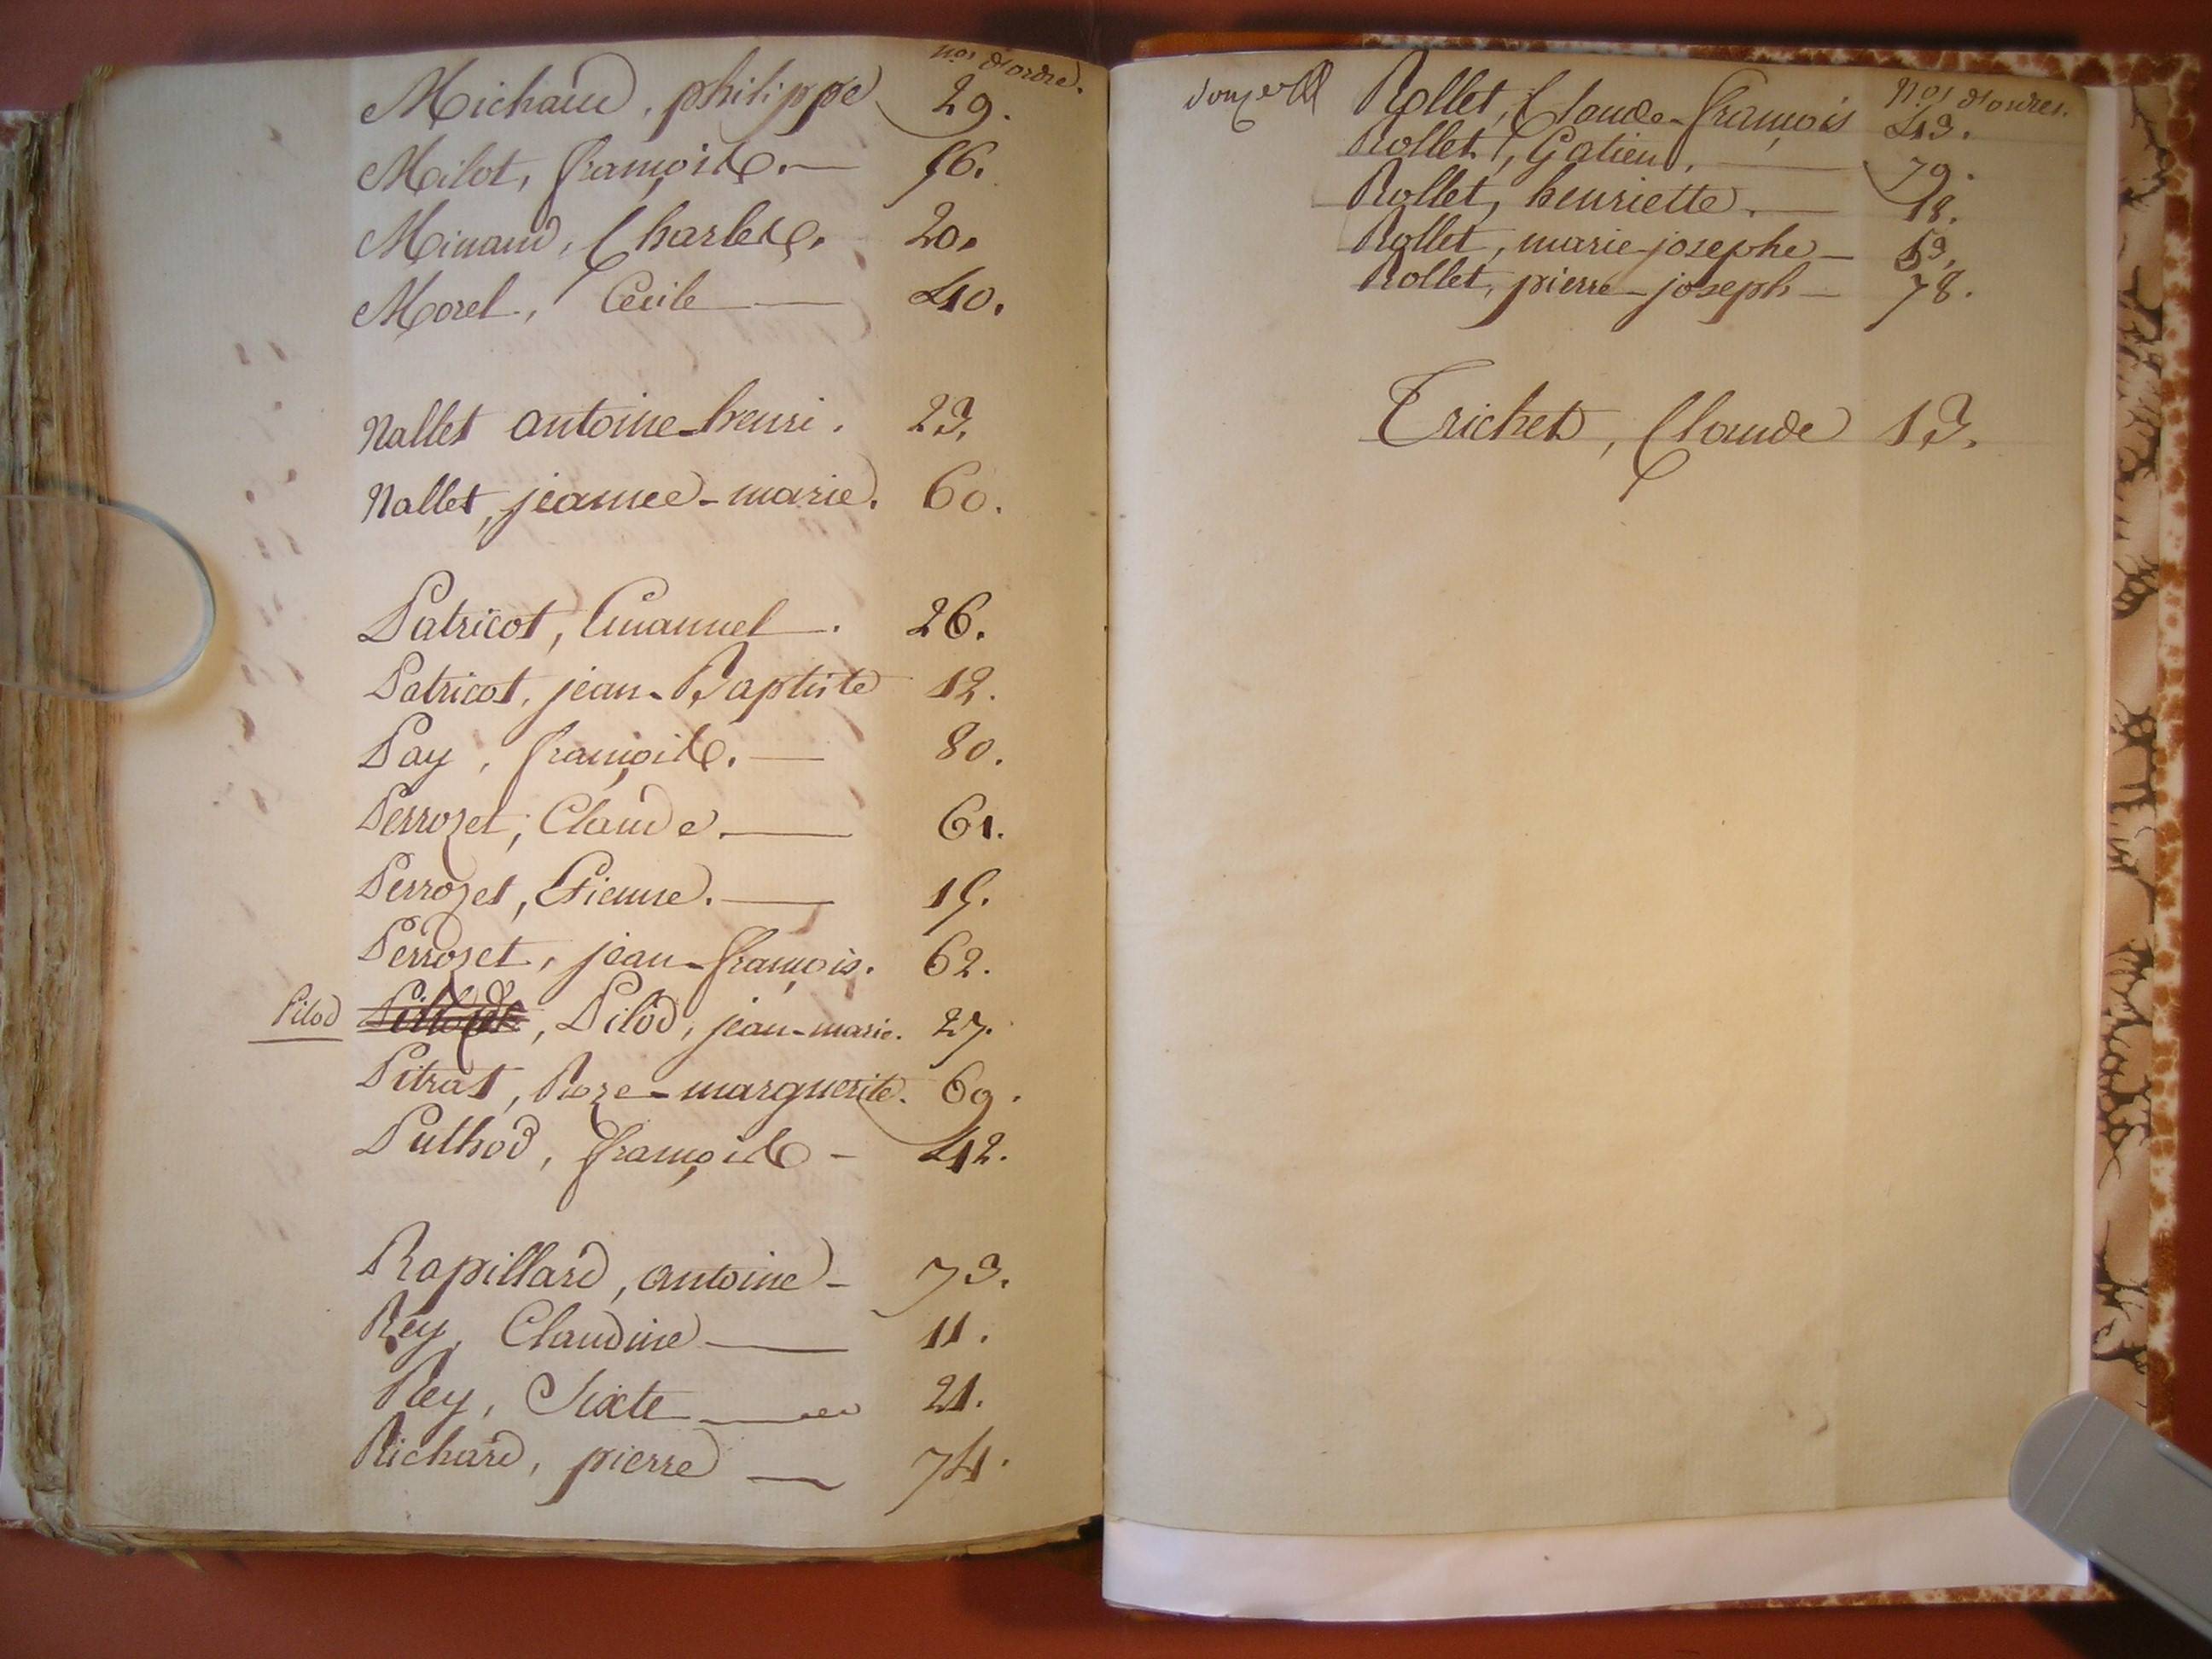 nos d'ordre.
Michaud, philippe 29.
Milot, françoise. — 56.
Minand, Charles. 20.
Morel, Cécile — 40.
Nallet antoine-henri. 23.
Nallet, jeanne-marie. 60.
Patricot, Emanuel. 26.
Patricot, jean-Baptiste 12.
Pay, françoise. — 80.
Perrozet, Claude. — 61.
Perrozet, Etienne. — 15.
Perrozet, jean-françois. 62.
Pilod , Pilod, jean-marie. 27.
Pitrat, Roze-marguerite. 69.
Puthod, françoise - 42.
Rapillard, antoine - 73.
Rey, Claudine — 11.
Rey, Sixte — 21.
Richard, pierre — 74.
Nos d'ordres.
Rollet, Claude-françois 43.
Rollet, Gatien. — 79.
Rollet, henriette. — 18.
Rollet, marie-josephe — 63.
Rollet, pierre-joseph — 78.
Trichet, Claude 13.